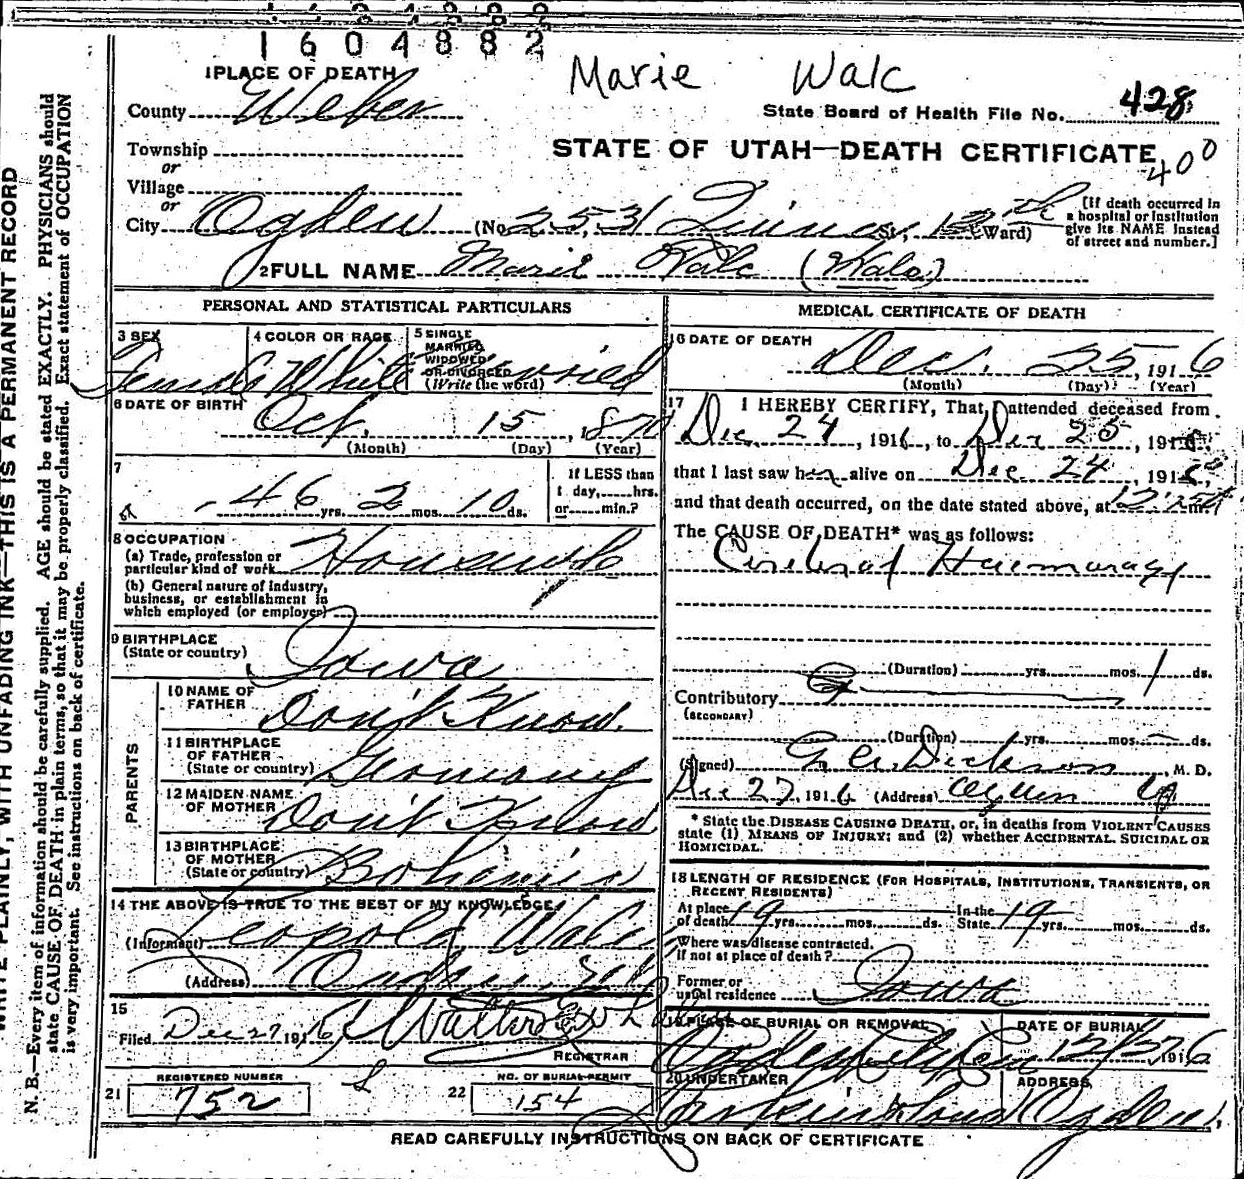 1604882
Marie Walc
1 PLACE OF DEATH
County Weber
State Board of Health File No. 428
Township
or
Village
or
STATE OF UTAH—DEATH CERTIFICATE
400
City Ogden (No. 2531 Quincy St., Ward)
[If death occurred in
a hospital or institution
give its NAME instead
of street and number.]
2 FULL NAME Marie Walc (Walc)
PERSONAL AND STATISTICAL PARTICULARS
3 SEX
Female
4 COLOR OR RACE
White
5 SINGLE
MARRIED
WIDOWED
OR DIVORCED
(Write the word)
Married
6 DATE OF BIRTH
Oct. 15, 1870
(Month) (Day) (Year)
7
46 yrs. 2 mos. 10 ds.
If LESS than
1 day,......hrs.
or......min.?
8 OCCUPATION
(a) Trade, profession or
particular kind of work Housewife
(b) General nature of industry,
business, or establishment in
which employed (or employer)
9 BIRTHPLACE
(State or country) Iowa
PARENTS
10 NAME OF
FATHER Don't Know.
11 BIRTHPLACE
OF FATHER
(State or country) Germany
12 MAIDEN NAME
OF MOTHER Don't Know
13 BIRTHPLACE
OF MOTHER
(State or country) Bohemia
14 THE ABOVE IS TRUE TO THE BEST OF MY KNOWLEDGE
(Informant) Leopold Walc
(Address) Ogden, Utah
15
Filed Dec 27 1916 Walter
REGISTRAR
21
REGISTERED NUMBER
752
22
NO. OF BURIAL PERMIT
154
MEDICAL CERTIFICATE OF DEATH
16 DATE OF DEATH
Dec. 25, 1916
(Month) (Day) (Year)
17 I HEREBY CERTIFY, That I attended deceased from
Dec 24, 1916, to Dec 25, 1916,
that I last saw her alive on Dec 24, 191
and that death occurred, on the date stated above, at
The CAUSE OF DEATH* was as follows:
Cerebral Haemorage
(Duration) yrs. mos. 1 ds.
Contributory
(SECONDARY)
(Duration) yrs. mos. ds.
(Signed) Dickson, M. D.
Dec 27, 1916 (Address) Ogden
* State the DISEASE CAUSING DEATH, or, in deaths from VIOLENT CAUSES
state (1) MEANS OF INJURY; and (2) whether ACCIDENTAL, SUICIDAL OR
HOMICIDAL.
18 LENGTH OF RESIDENCE (FOR HOSPITALS, INSTITUTIONS, TRANSIENTS, OR
RECENT RESIDENTS)
At place
of death 19 yrs. mos. ds. In the
State 19 yrs. mos. ds.
Where was disease contracted,
if not at place of death?
Former or
usual residence Iowa
19 PLACE OF BURIAL OR REMOVAL
Ogden City Cem
DATE OF BURIAL
12/27, 1916
20 UNDERTAKER
ADDRESS
Ogden,
READ CAREFULLY INSTRUCTIONS ON BACK OF CERTIFICATE
WRITE PLAINLY, WITH UNFADING INK—THIS IS A PERMANENT RECORD
N. B.—Every item of information should be carefully supplied. AGE should be stated EXACTLY. PHYSICIANS should
state CAUSE OF DEATH in plain terms, so that it may be properly classified. Exact statement of OCCUPATION
is very important. See instructions on back of certificate.